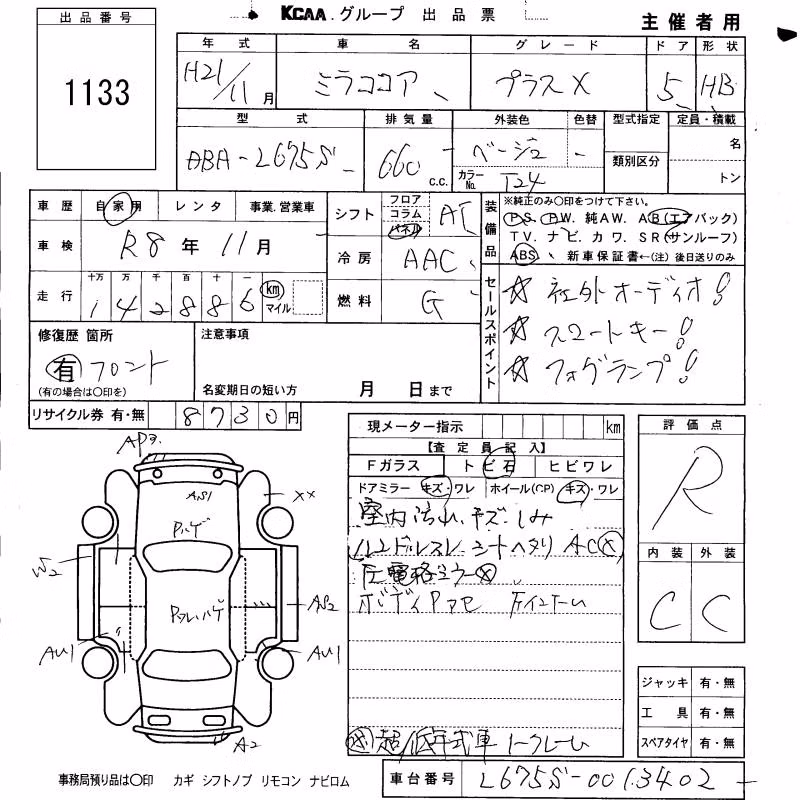 KCAA.グループ 出品票
主催者用
出品番号
1133
年式 車名 グレード ドア 形状
H21/11月 ミラココア プラスX 5 HB
型式 排気量 外装色 色替 型式指定 定員・積載
DBA-L675S 660 c.c. ベージュ - 名
カラーNo. T24 類別区分 トン
車歴 自家用 レンタ 事業.営業車
車検 R8年11月
走行 十万 万 千 百 十 一
142886 km マイル
シフト フロア コラム パネル AT
冷房 AAC
燃料 G
装備品 ※純正のみ○印をつけて下さい。
P S. P W. 純A W. A B (エアバック)
T V. ナ ビ. カ ワ. S R (サンルーフ)
ABS. 新車保証書←(注) 後日送りのみ
セールスポイント
☆ 社外オーディオ!
☆ スマートキー!
☆ フォグランプ!
修復歴 箇所
有 フロント
(有の場合は○印を)
注意事項
名変期日の短い方 月 日まで
リサイクル券 有・無 8730円
現メーター指示 km
【査定員記入】
Fガラス ト ビ石 ヒビワレ
ドアミラー キズ・ワレ ホイール(CP) キズ・ワレ
室内汚れ.キズ.しみ
ハンドルスレ シートヘタリ AC×
圧電格ミラー×
ボディPアセ
超/低年式車 ノークレーム
評価点
R
内装 外装
C C
ジャッキ 有・無
工具 有・無
スペアタイヤ 有・無
AP3.
AS1
Pハゲ
××
W2
Pアレ.ハゲ
AS2
AU1
AU1
A2
事務局預り品は○印 カギ シフトノブ リモコン ナビロム
車台番号 L675S-0013402